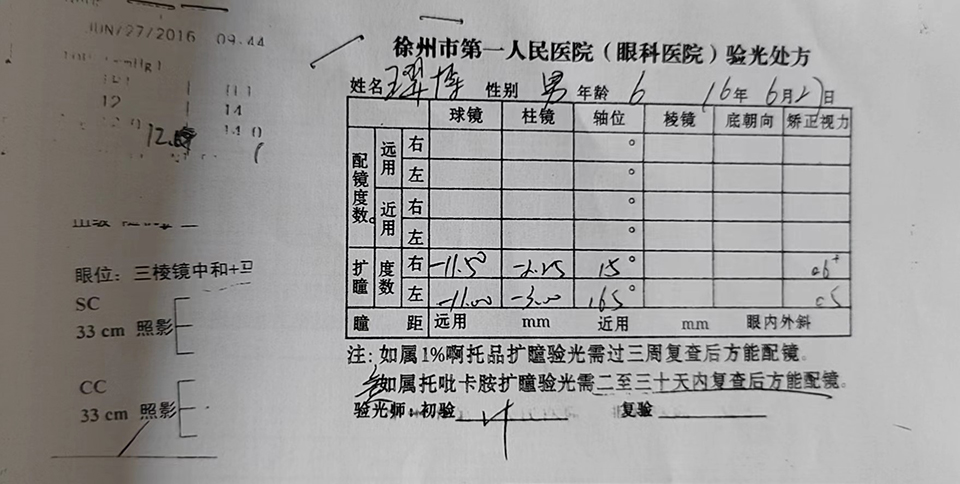 JUN/27/2016 09:44
12 14
眼位：三棱镜中和+
SC
33 cm 照影
CC
33 cm 照影
徐州市第一人民医院（眼科医院）验光处方
姓名 性别 男 年龄 6 16年 6月27日
球镜 柱镜 轴位 棱镜 底朝向 矫正视力
配镜度数 远用 右 °
左 °
近用 右 °
左 °
扩瞳 度数 右 -11.50 -2.25 15°
左 -11.00 -3.00 165°
瞳距 远用 mm 近用 mm 眼内外斜
注：如属1%啊托品扩瞳验光需过三周复查后方能配镜。
如属托吡卡胺扩瞳验光需二至三十天内复查后方能配镜。
验光师：初验 复验